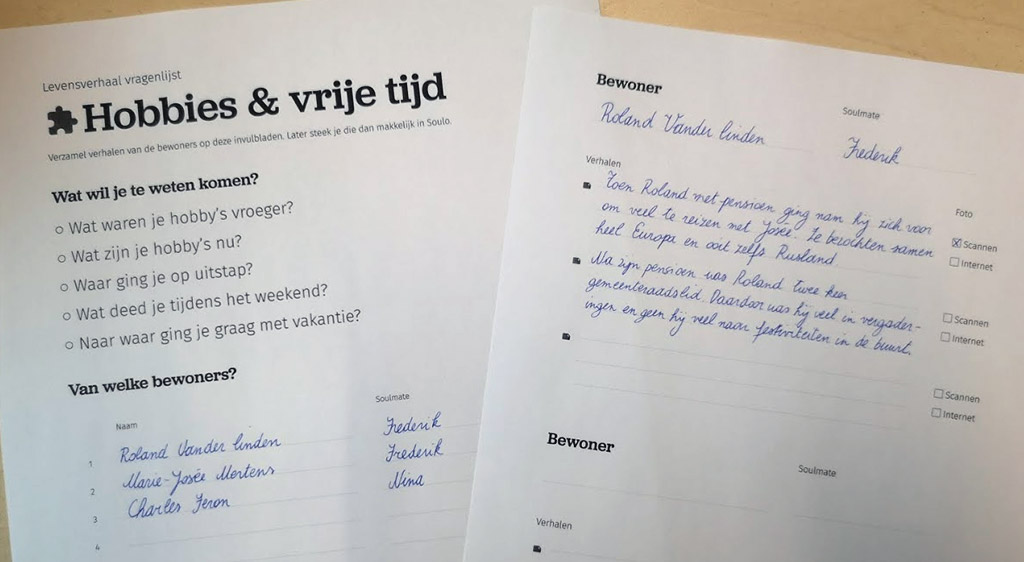 Levensverhaal vragenlijst
Hobbies & vrije tijd
Verzamel verhalen van de bewoners op deze invulbladen. Later steek je die dan makkelijk in Soulo.
Wat wil je te weten komen?
Wat waren je hobby's vroeger?
Wat zijn je hobby's nu?
Waar ging je op uitstap?
Wat deed je tijdens het weekend?
Naar waar ging je graag met vakantie?
Van welke bewoners?
Naam Soulmate
1 Roland Vander linden Frederik
2 Marie-Josée Mertens Frederik
3 Charles Feron Nina
4
Bewoner Soulmate
Roland Vander linden Frederik
Verhalen Foto
Toen Roland met pensioen ging nam hij zich voor
om veel te reizen met Josée. Ze bezochten samen
heel Europa en ooit zelfs Rusland
Scannen
Internet
Na zijn pensioen was Roland twee keer
gemeenteraadslid. Daardoor was hij veel in vergader-
ingen en geen hij veel naar festiviteiten in de buurt.
Scannen
Internet
Scannen
Internet
Bewoner Soulmate
Verhalen